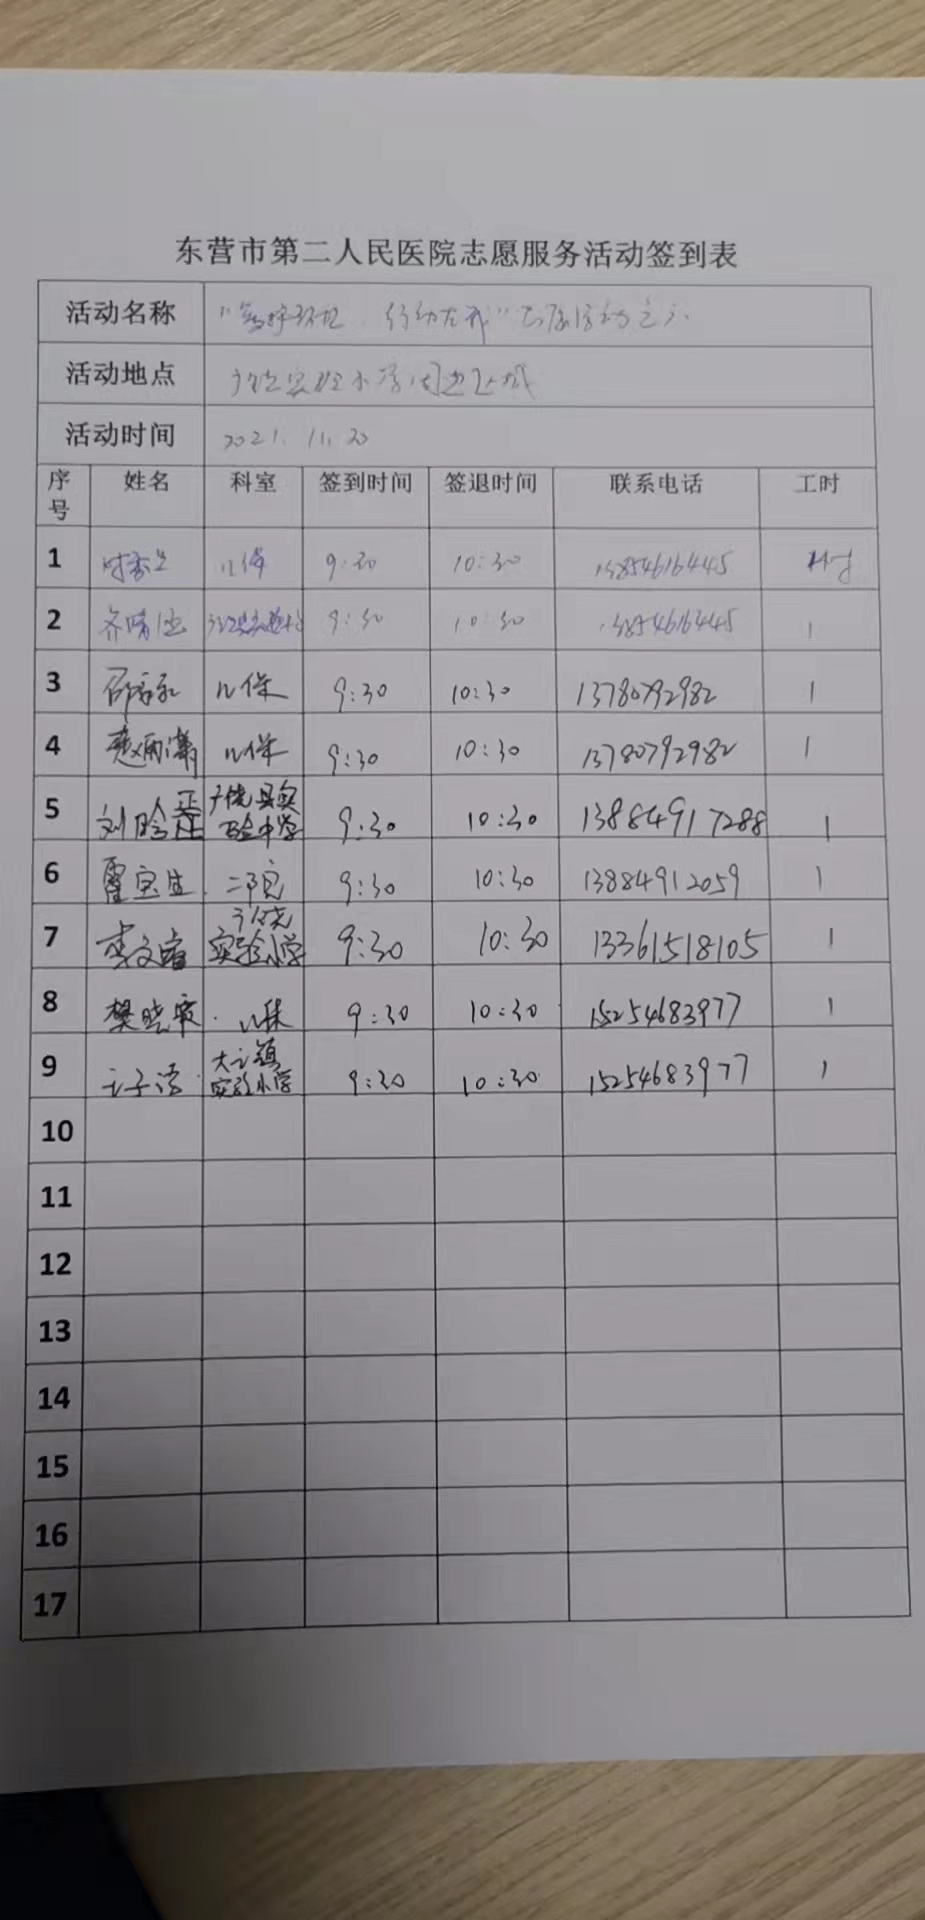 东营市第二人民医院志愿服务活动签到表
活动名称
活动地点 小学周边区域
活动时间 2021.11.20
序号 姓名 科室 签到时间 签退时间 联系电话 工时
1 儿保 9:30 10:30 13854616445
2 齐 9:30 10:30 13854616445 1
3 儿保 9:30 10:30 13780792982 1
4 儿保 9:30 10:30 13780792982 1
5 刘 广饶县实验中学 9:30 10:30 13884917288 1
6 霍宝生 二院 9:30 10:30 13884912059 1
7 李文睿 广饶实验小学 9:30 10:30 13361518105 1
8 樊晓 儿保 9:30 10:30 15254683977 1
9 王子涵 大王镇实验小学 9:30 10:30 15254683977 1
10
11
12
13
14
15
16
17